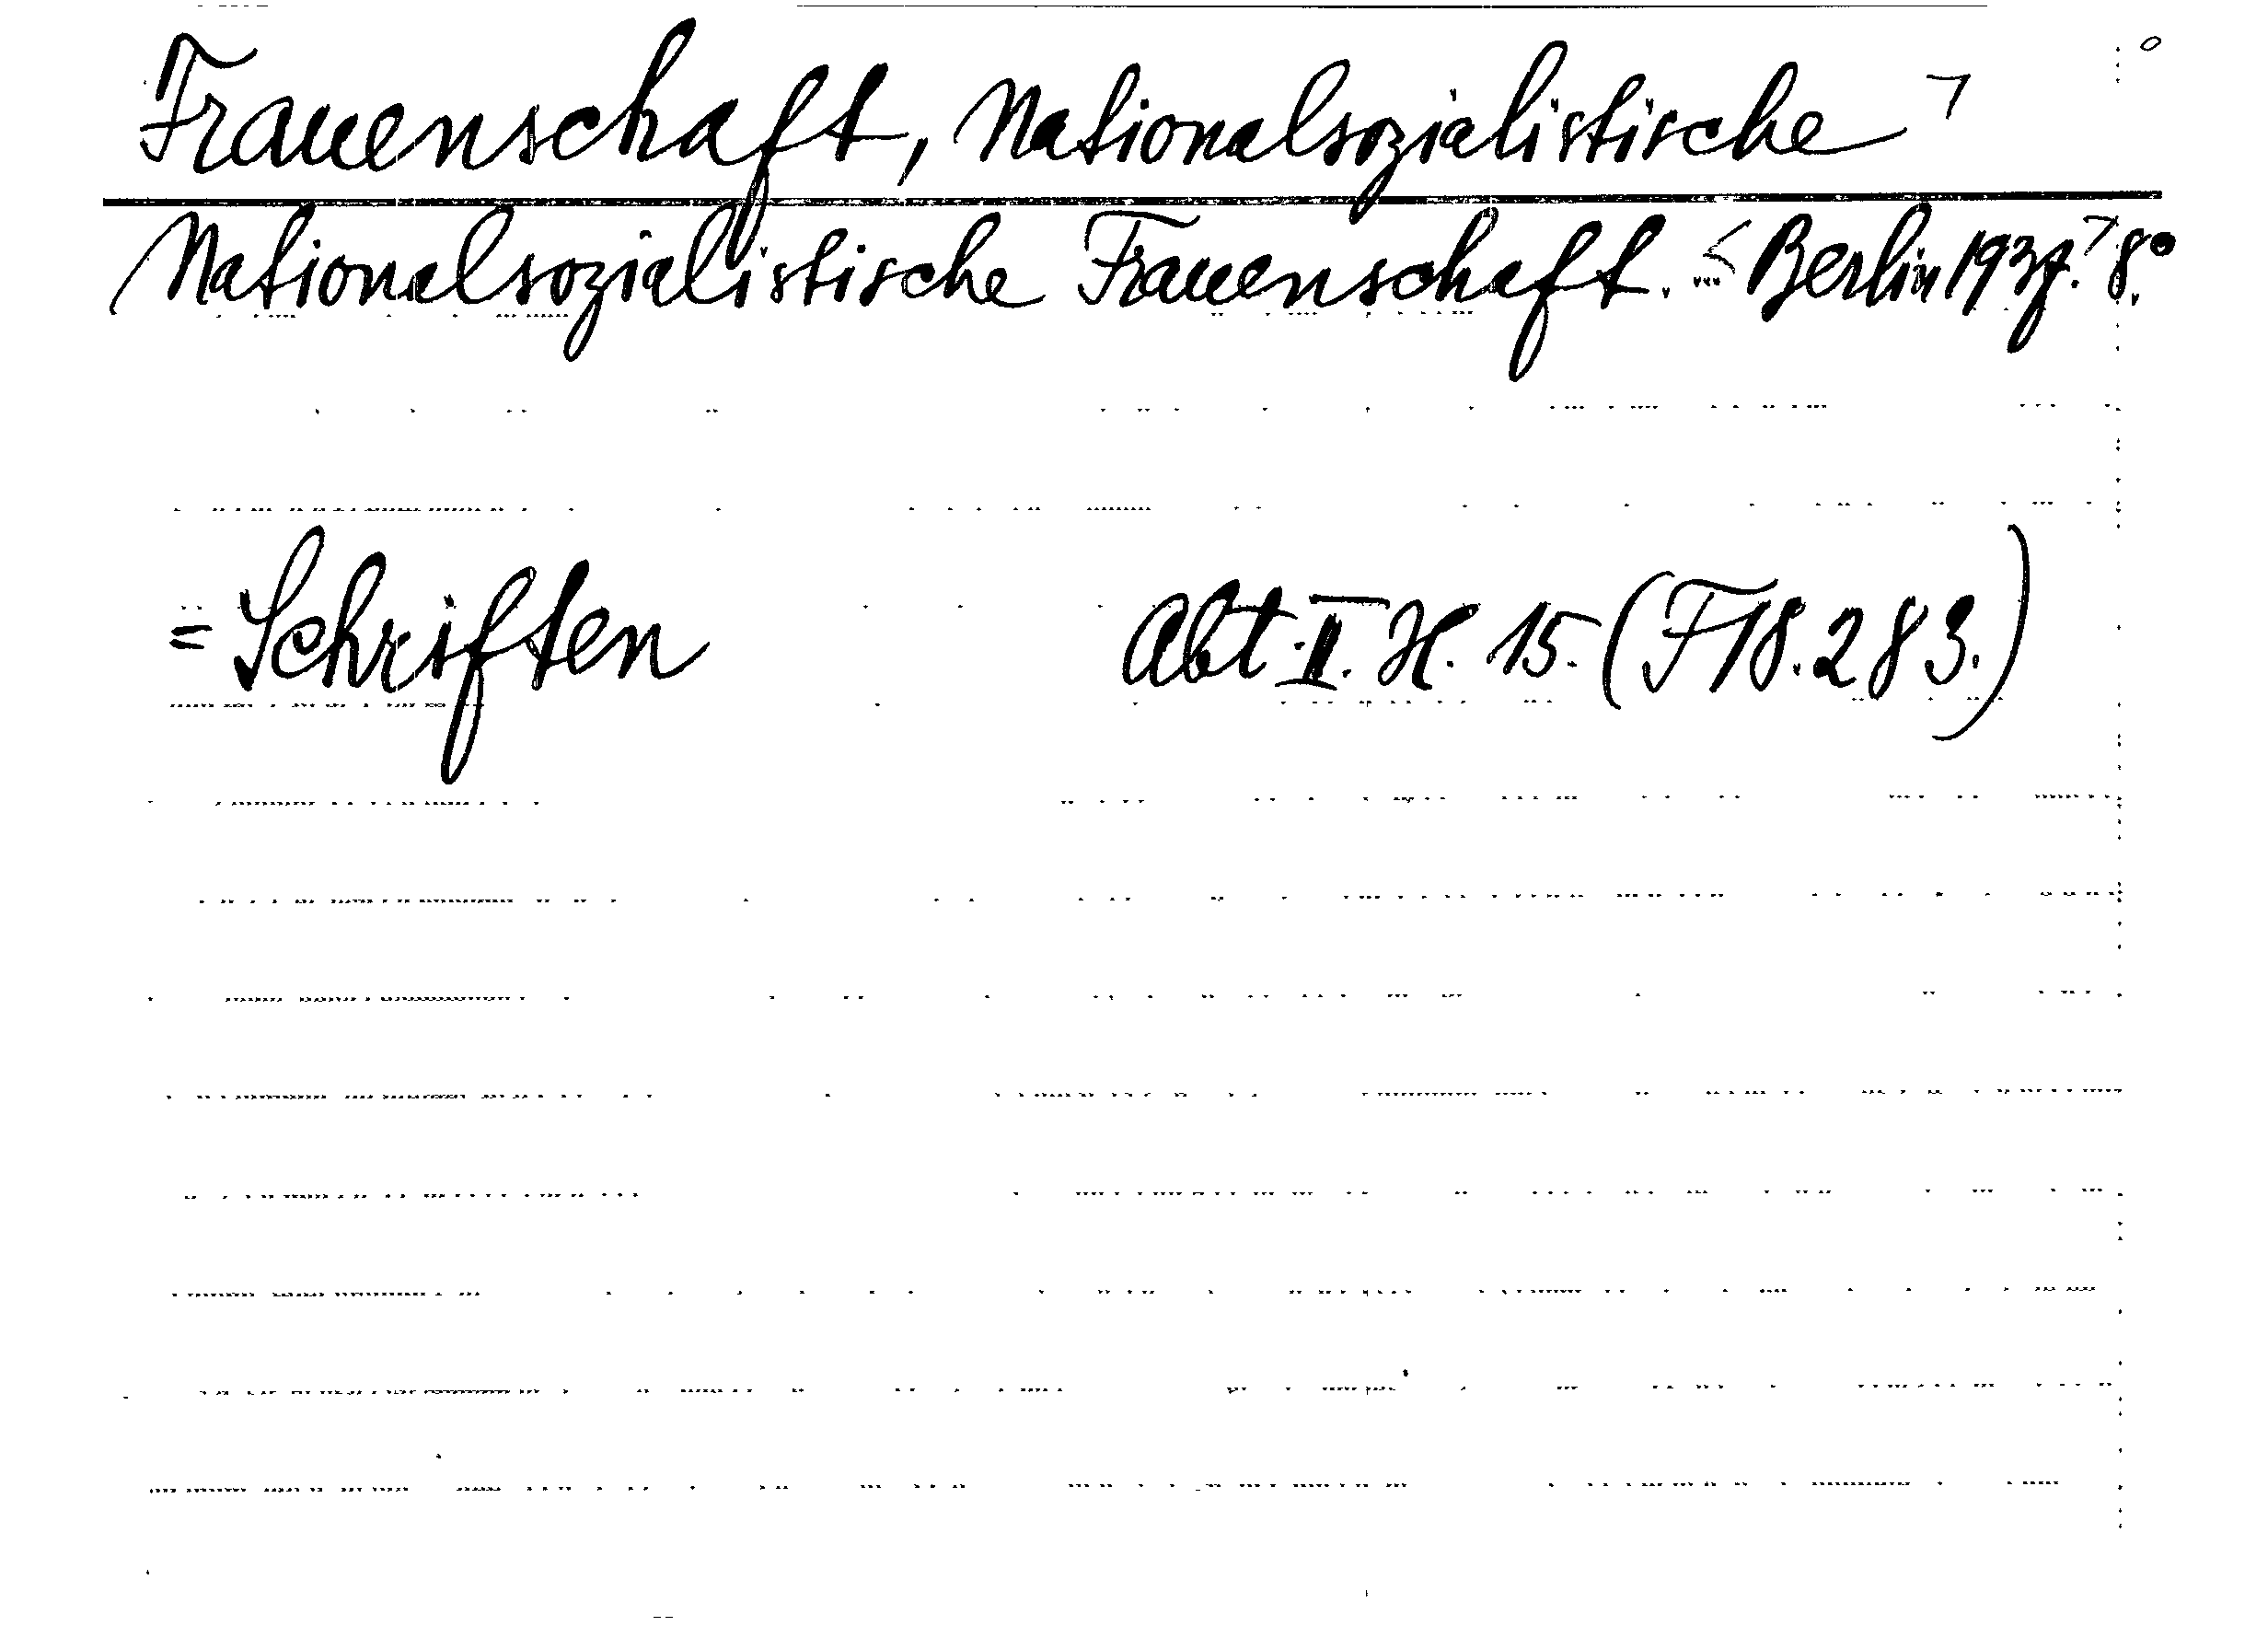 Frauenschaft, Nationalsozialistische ⁊
Nationalsozialistische Frauenschaft. < Berlin 1937.> 8°.
= Schriften Abt. II. H. 15. (F 18.283.)